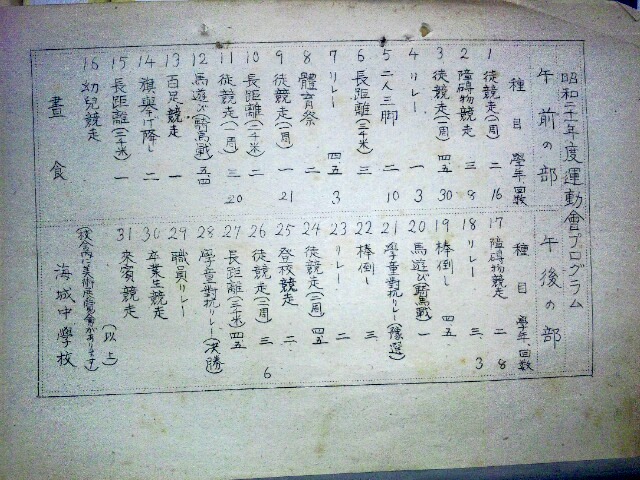 昭和二十一年度運動會プログラム
午前の部
種目 學年 回数
1 徒競走(一周) 二 16
2 障碍物競走 三 8
3 徒競走(一周) 四五 30
4 リレー 一 3
5 二人三脚 二 10
6 長距離(二千米) 三
7 リレー 四五 3
8 體育祭 二
9 徒競走(一周) 一 21
10 長距離(二千米) 二
11 徒競走(一周) 三 20
12 馬遊び(騎馬戦) 五四
13 百足競走 一
14 旗奥げ降し 二
15 長距離(二千米) 一
16 幼兒競走
晝食
午後の部
種目 學年、回数
17 障碍物競走 二 8
18 リレー 三 3
19 棒倒し 四五
20 馬遊び(騎馬戦) 一
21 學童對抗リレー(豫選)
22 棒倒し 三
23 リレー 二
24 徒競走(二周) 四五
25 登校競走 二
26 徒競走(二周) 三 6
27 長距離(三千米) 四五
28 學童對抗リレー(決勝)
29 職員リレー
30 卒業生競走
31 來賓競走
(以上)
(校舎に美術展覧會があります)
海城中學校